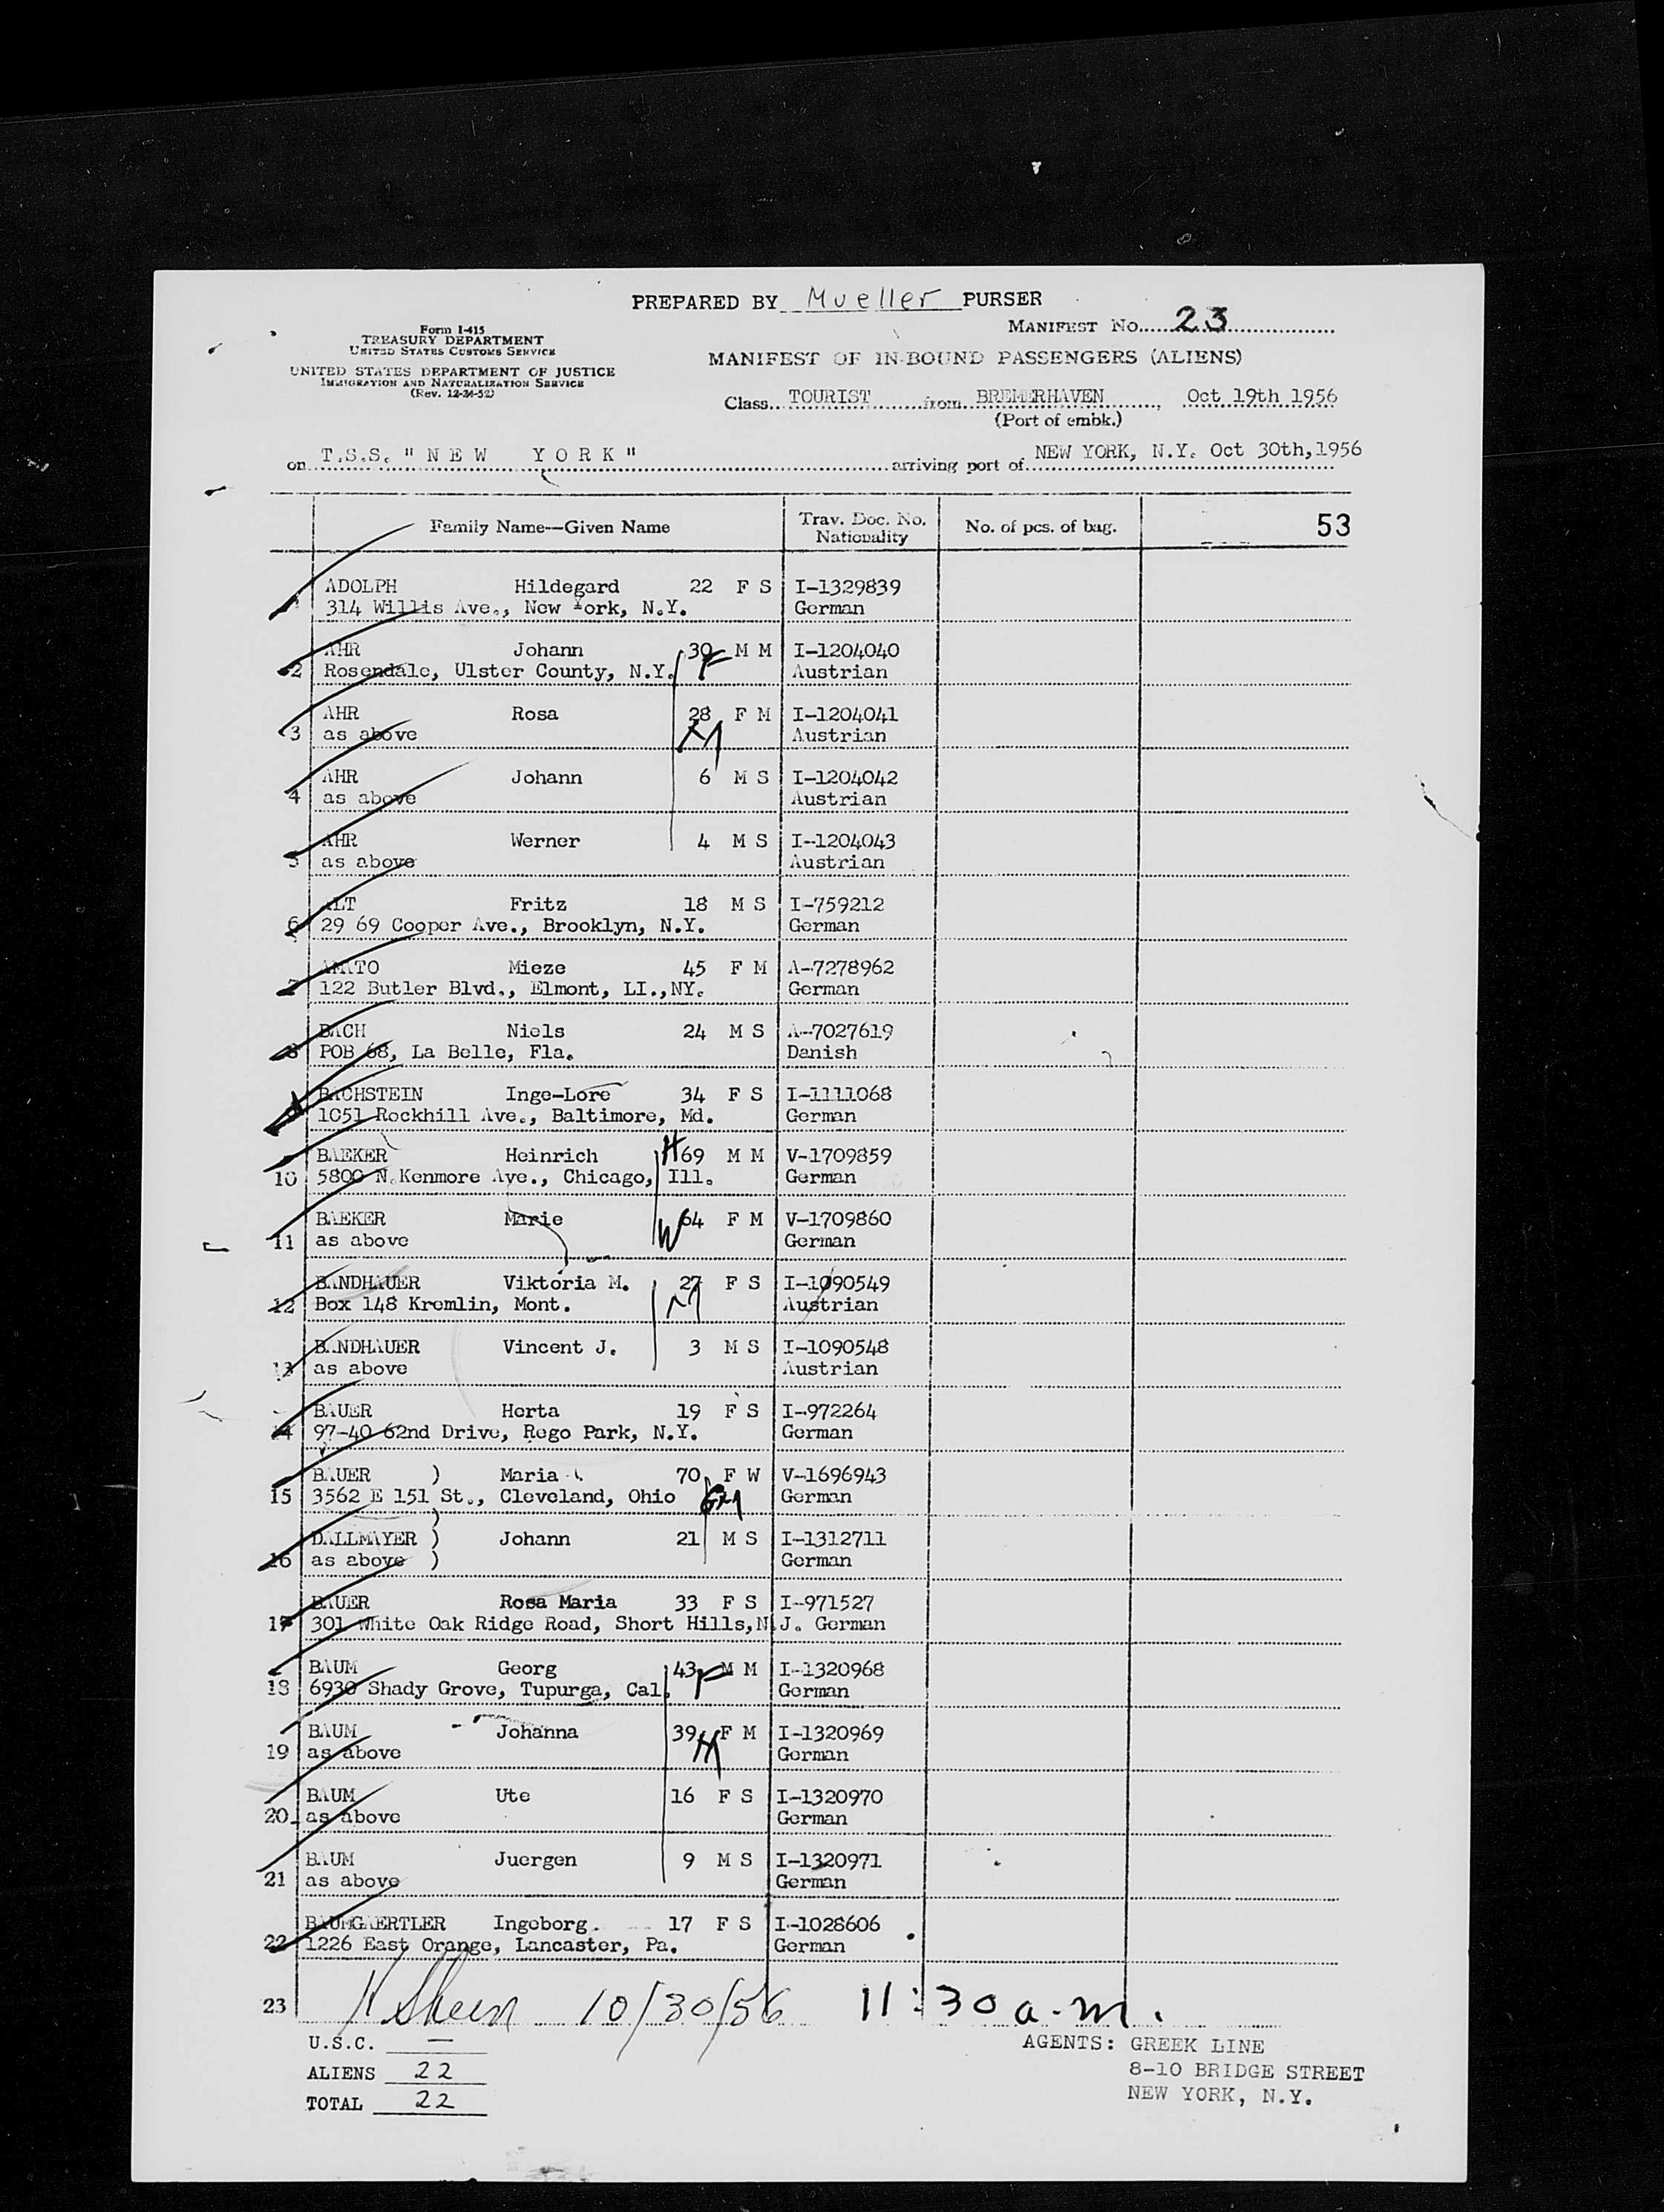 PREPARED BY Mueller PURSER
Manifest No. 23
Form I-415
TREASURY DEPARTMENT
UNITED STATES CUSTOMS SERVICE
UNITED STATES DEPARTMENT OF JUSTICE
IMMIGRATION AND NATURALIZATION SERVICE
(Rev. 12-24-52)
MANIFEST OF IN-BOUND PASSENGERS (ALIENS)
Class TOURIST from BREMERHAVEN, Oct 19th 1956
(Port of embk.)
on T.S.S. "NEW YORK" arriving port of NEW YORK, N.Y. Oct 30th,1956
Family Name—Given Name Trav. Doc. No. Nationality No. of pcs. of bag. 53
1 ADOLPH Hildegard 22 F S I-1329839
314 Willis Ave., New York, N.Y. German
2 AHR Johann 30 M M I-1204040
Rosendale, Ulster County, N.Y. F Austrian
3 AHR Rosa 28 F M I-1204041
as above Austrian
4 AHR Johann 6 M S I-1204042
as above Austrian
5 AHR Werner 4 M S I-1204043
as above Austrian
6 ALT Fritz 18 M S I-759212
29 69 Cooper Ave., Brooklyn, N.Y. German
7 AMATO Mieze 45 F M A-7278962
122 Butler Blvd., Elmont, LI.,NY. German
8 BACH Niels 24 M S A-7027619
POB 68, La Belle, Fla. Danish
BACHSTEIN Inge-Lore 34 F S I-1111068
1051 Rockhill Ave., Baltimore, Md. German
10 BAEKER Heinrich H 69 M M V-1709859
5800 N.Kenmore Ave., Chicago, Ill. German
11 BAEKER Marie W 64 F M V-1709860
as above German
12 BANDHAUER Viktoria M. 27 F S I-1090549
Box 148 Kremlin, Mont. M Austrian
13 BANDHAUER Vincent J. 3 M S I-1090548
as above Austrian
14 BAUER Herta 19 F S I-972264
97-40 62nd Drive, Rego Park, N.Y. German
15 BAUER ) Maria 70 F W V-1696943
3562 E 151 St., Cleveland, Ohio GM German
16 DALLMAYER ) Johann 21 M S I-1312711
as above ) German
17 BAUER Rosa Maria 33 F S I-971527
301 White Oak Ridge Road, Short Hills,N.J. German
18 BAUM Georg 43 F M M I-1320968
6930 Shady Grove, Tupurga, Cal. German
19 BAUM Johanna 39 F M I-1320969
as above German
20 BAUM Ute 16 F S I-1320970
as above German
21 BAUM Juergen 9 M S I-1320971
as above German
22 BAUMGAERTLER Ingeborg 17 F S I-1028606
1226 East Orange, Lancaster, Pa. German
23 10/30/56 11:30 a.m.
U.S.C. —
ALIENS 22
TOTAL 22
AGENTS: GREEK LINE
8-10 BRIDGE STREET
NEW YORK, N.Y.